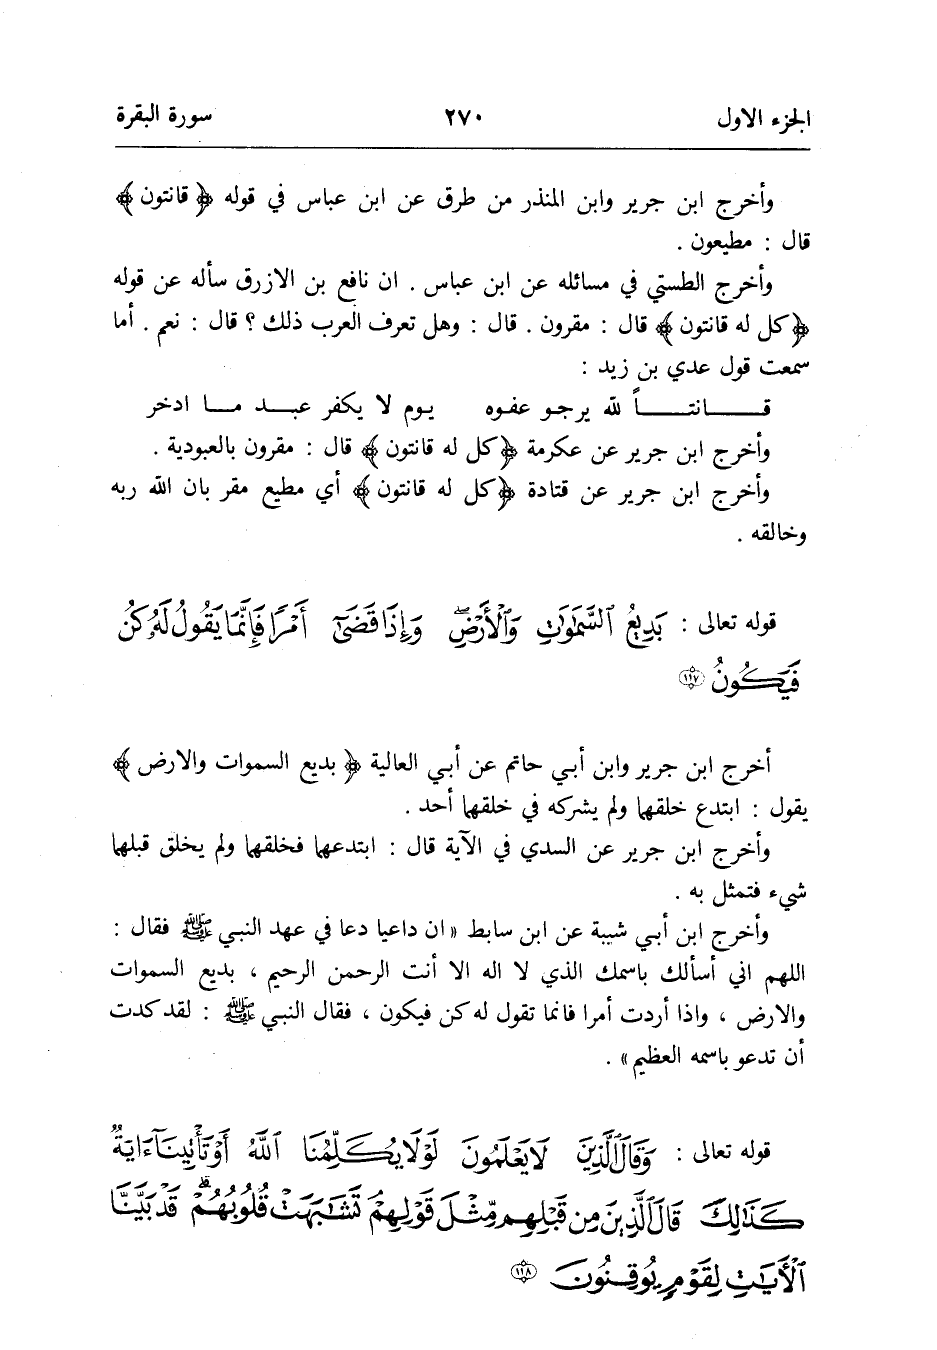 الجزء الاول ٢٧٠ سورة البقرة
وأخرج ابن جرير وابن المنذر من طرق عن ابن عباس في قوله ﴿ قانتون ﴾
قال : مطيعون .
وأخرج الطستي في مسائله عن ابن عباس . ان نافع بن الازرق سأله عن قوله
﴿ كل له قانتون ﴾ قال : مقرون . قال : وهل تعرف العرب ذلك ؟ قال : نعم . أما
سمعت قول عدي بن زيد :
قـــانتـــاً لله يرجــو عفــوه يــوم لا يكفر عبــد مــا ادخر
وأخرج ابن جرير عن عكرمة ﴿ كل له قانتون ﴾ قال : مقرون بالعبودية .
وأخرج ابن جرير عن قتادة ﴿ كل له قانتون ﴾ أي مطيع مقر بان الله ربه
وخالقه .
قوله تعالى : بَدِيعُ ٱلسَّمَٰوَٰتِ وَٱلْأَرْضِۖ وَإِذَا قَضَىٰٓ أَمْرًا فَإِنَّمَا يَقُولُ لَهُۥ كُن
فَيَكُونُ ١١٧
أخرج ابن جرير وابن أبي حاتم عن أبي العالية ﴿ بديع السموات والارض ﴾
يقول : ابتدع خلقها ولم يشركه في خلقها أحد .
وأخرج ابن جرير عن السدي في الآية قال : ابتدعها فخلقها ولم يخلق قبلها
شيء فتمثل به .
وأخرج ابن أبي شيبة عن ابن سابط « ان داعيا دعا في عهد النبي ﷺ فقال :
اللهم اني أسألك باسمك الذي لا اله الا أنت الرحمن الرحيم ، بديع السموات
والارض ، واذا أردت أمرا فانما تقول له كن فيكون ، فقال النبي ﷺ : لقد كدت
أن تدعو باسمه العظيم » .
قوله تعالى : وَقَالَ ٱلَّذِينَ لَا يَعْلَمُونَ لَوْلَا يُكَلِّمُنَا ٱللَّهُ أَوْ تَأْتِينَآ ءَايَةٌ
كَذَٰلِكَ قَالَ ٱلَّذِينَ مِن قَبْلِهِم مِّثْلَ قَوْلِهِمْ تَشَٰبَهَتْ قُلُوبُهُمْۗ قَدْ بَيَّنَّا
ٱلْأٓيَٰتِ لِقَوْمٍ يُوقِنُونَ ١١٨